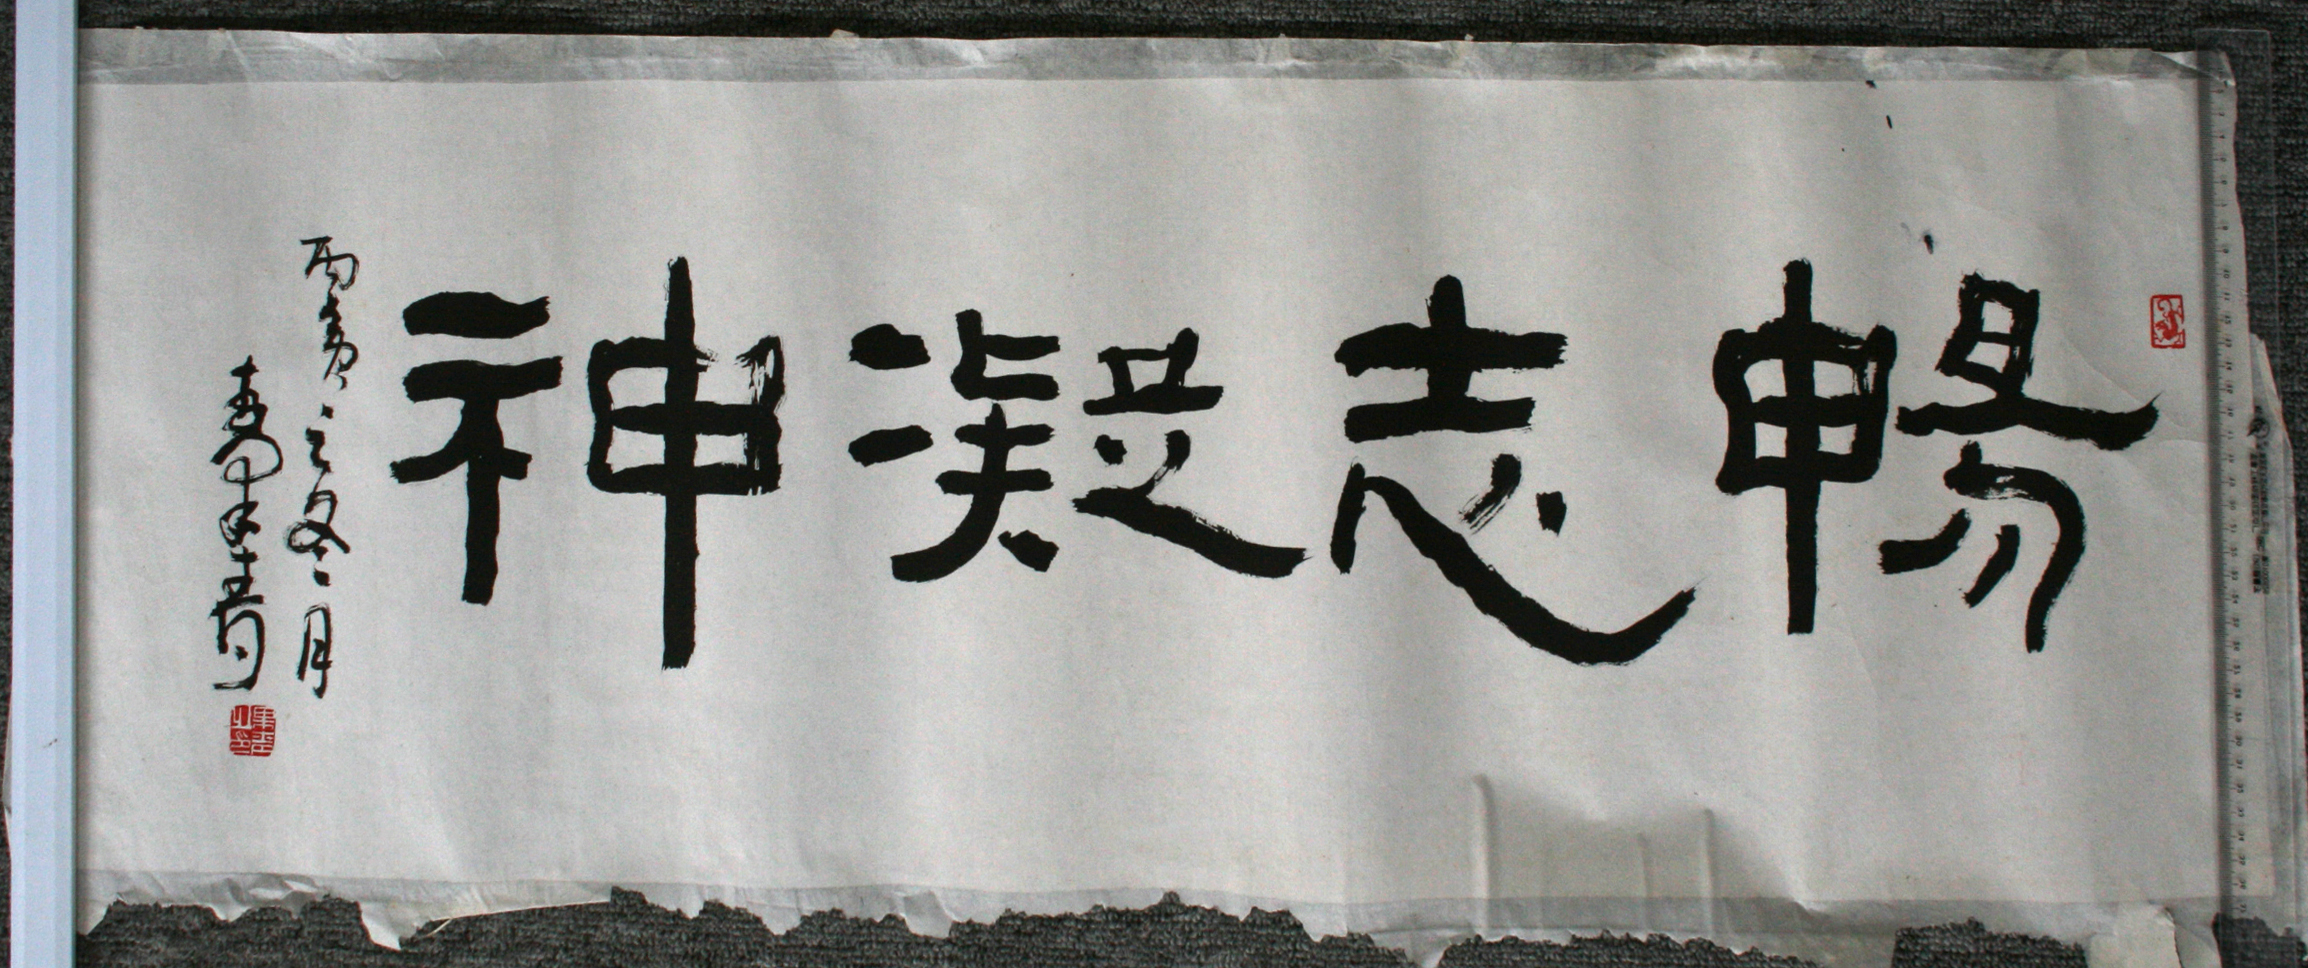 暢志凝神
丙寅之冬月